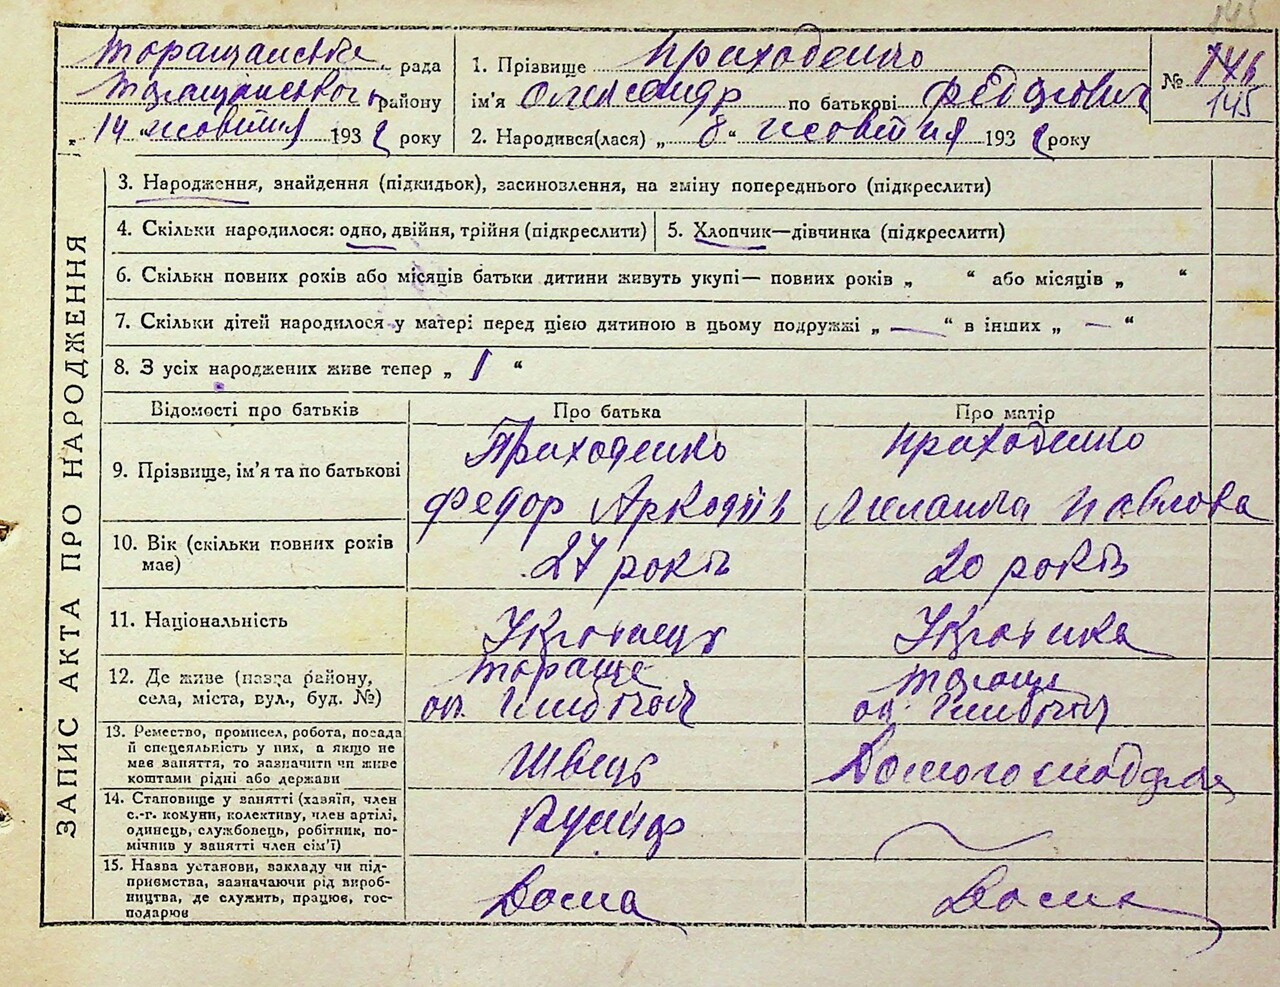 145
Таращанська рада
Таращанського району
„ 14 " жовтня 1932 року
1. Прізвище Приходенко
ім'я Олександр по батькові Федорович
2. Народився(лася) „ 8 " жовтня 1932 року
№ 146
145
ЗАПИС АКТА ПРО НАРОДЖЕННЯ
3. Народження, знайдення (підкидьок), засиновлення, на зміну попереднього (підкреслити)
4. Скільки народилося: одно, двійня, трійня (підкреслити)
5. Хлопчик—дівчинка (підкреслити)
6. Скільки повних років або місяців батьки дитини живуть укупі— повних років „ “ або місяців „ “
7. Скільки дітей народилося у матері перед цією дитиною в цьому подружжі „ — “ в інших „ — “
8. З усіх народжених живе тепер „ 1 “
Відомості про батьків
Про батька
Про матір
9. Прізвище, ім'я та по батькові
Приходенко
Федор Аркадіїв
Приходенко
Павлова
10. Вік (скільки повних років
має)
27 років
20 років
11. Національність
Українець
Українка
12. Де живе (назва району,
села, міста, вул., буд. №)
Тараща
Тараща
13. Ремество, промисел, робота, посада
й спецеяльність у них, а якщо не
має заняття, то зазначити чи живе
коштами рідні або держави
Швець
Домогосподарка
14. Становище у занятті (хазяїн, член
с.-г. комуни, колективу, член артілі,
одинець, службовець, робітник, по-
мічник у занятті член сім'ї)
15. Назва установи, закладу чи під-
приємства, зазначаючи рід вироб-
ництва, де служить, працює, гос-
подарює
Дома
Дома